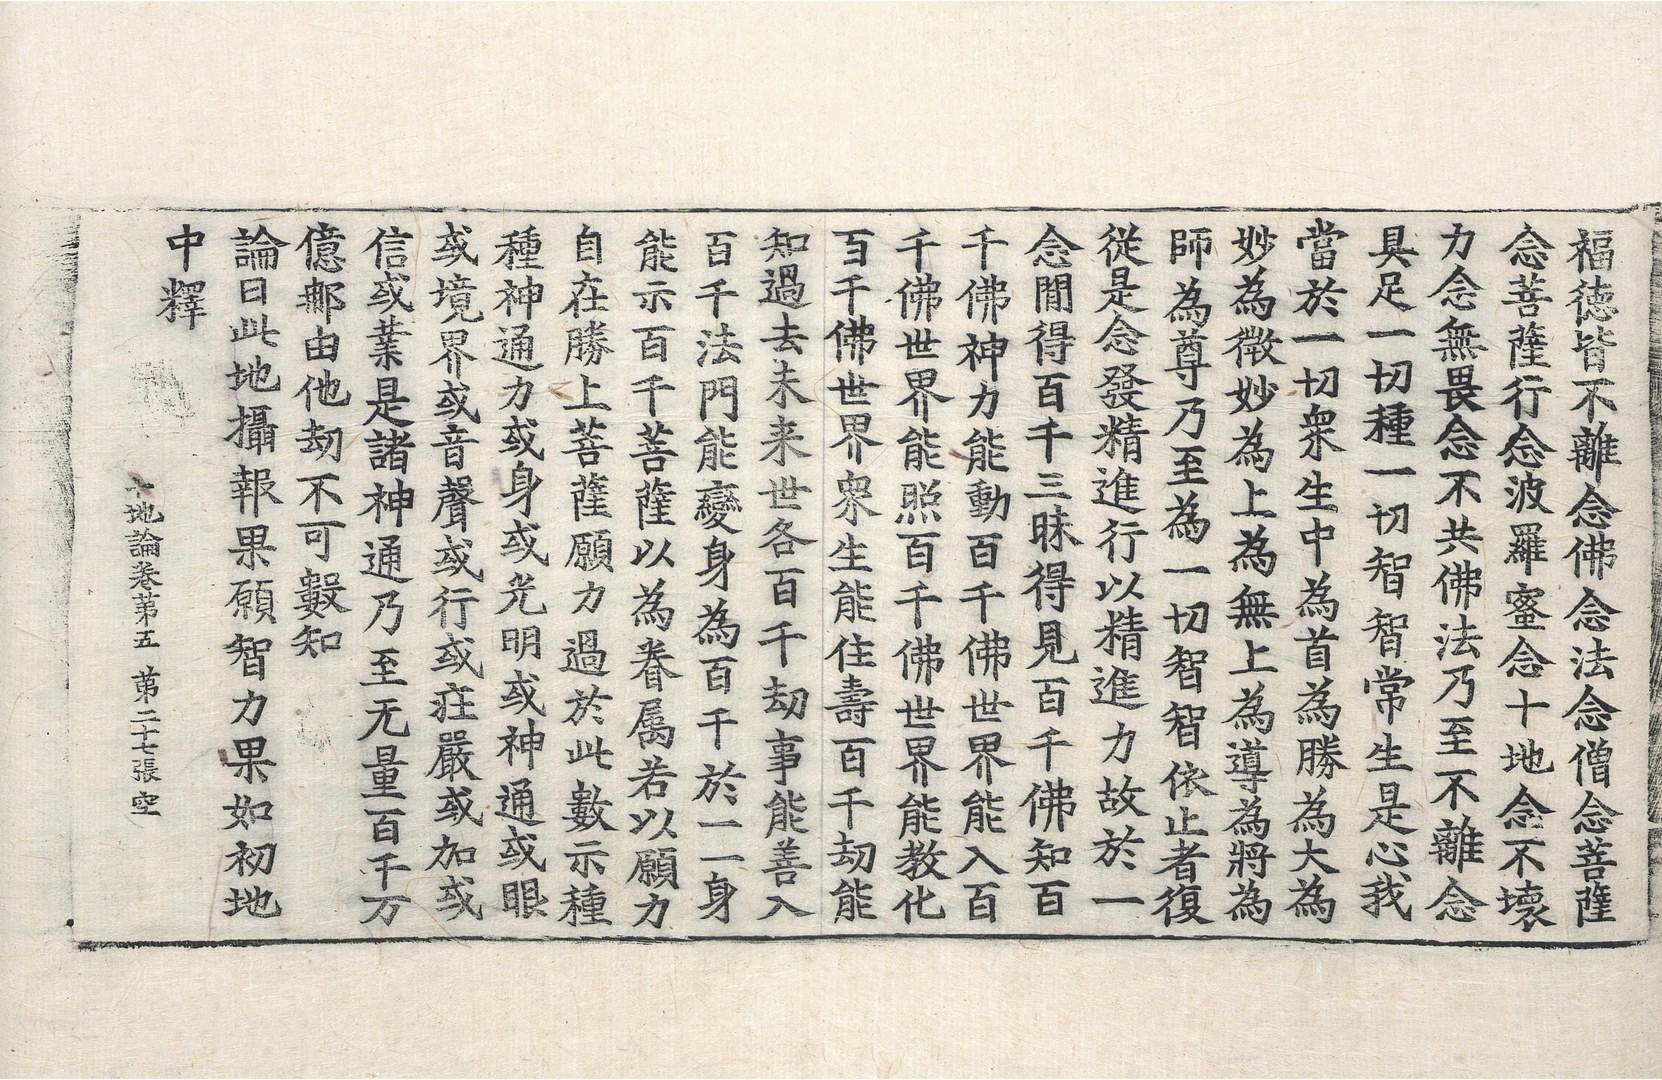 福德皆不離念佛念法念僧念菩薩
念菩薩行念波羅蜜念十地念不壞
力念無畏念不共佛法乃至不離念
具足一切種一切智智常生是心我
當於一切衆生中為首為勝為大為
妙為微妙為上為無上為導為將為
師為尊乃至為一切智智依止者復
從是念發精進行以精進力故於一
念閒得百千三昧得見百千佛知百
千佛神力能動百千佛世界能入百
千佛世界能照百千佛世界能教化
百千佛世界衆生能住壽百千劫能
知過去未来世各百千劫事能善入
百千法門能變身為百千於一一身
能示百千菩薩以為眷屬若以願力
自在勝上菩薩願力過於此數示種
種神通力或身或光明或神通或眼
或境界或音聲或行或莊嚴或加或
信或業是諸神通乃至无量百千万
億那由他劫不可數知
論曰此地攝報果願智力果如初地
中釋
十地論卷第五　第二十七張　空